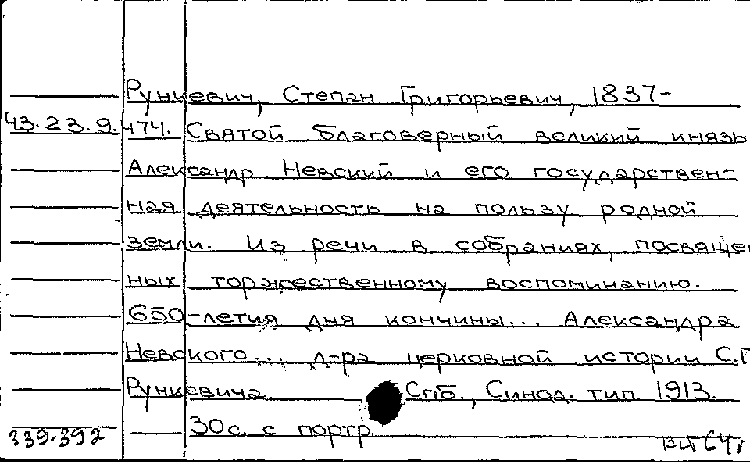 Рункевич, Степан Григорьевич, 1837-
43.23.9.474. Святой благоверный великий князь
Александр Невский и его государствен-
ная деятельность на пользу родной
земли. Из речи в собраниях, посвящен
ных торжественному воспоминанию.
650-летия дня кончины... Александра
Невского..., д-ра церковной истории С.Г
Рункевича Спб., Синод. тип. 1913.
30с. с портр.
339.392